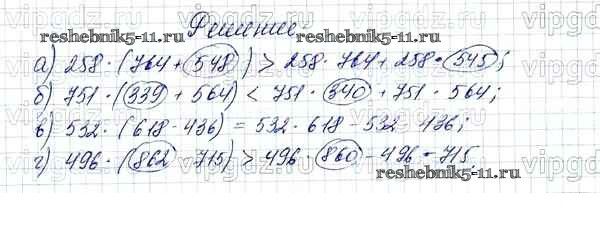 Решение
reshebnik5-11.ru
reshebnik5-11.ru
а) 258 · (764 + 548) > 258 · 764 + 258 · 545;
б) 751 · (339 + 564) < 751 · 340 + 751 · 564;
в) 532 · (618 - 436) = 532 · 618 - 532 · 436;
г) 496 · (862 - 715) > 496 · 860 - 496 · 715.
reshebnik5-11.ru
reshebnik
5-11.ru
vipgdz.ru